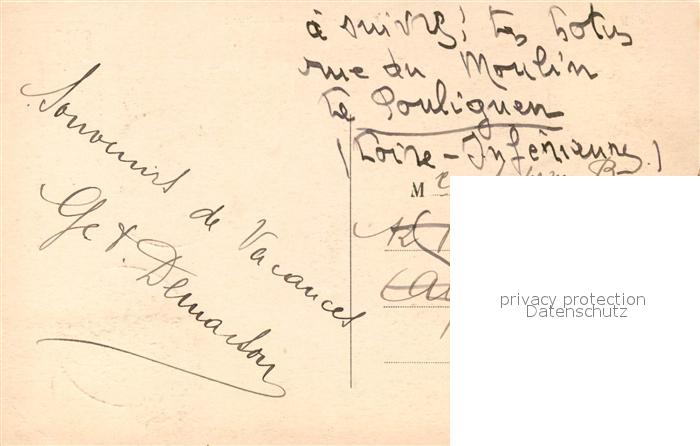 Souvenirs de Vacances
Ge &. Demarton
à suivre: Les Lotus
rue du Moulin
Le Pouliguen
(Loire-Inférieure)
M
privacy protection
Datenschutz